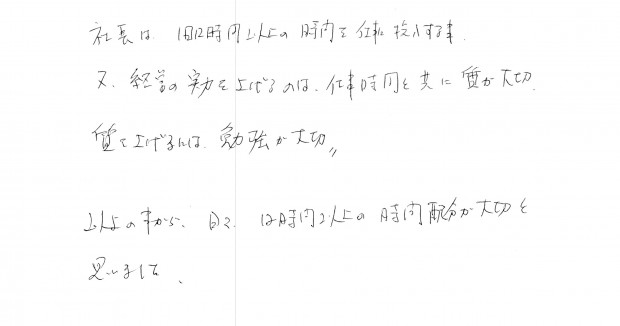 社長は、1日12時間以上の時間を仕事に投入する事.
又、経営の実力を上げるのは、仕事時間と共に質が大切.
質を上げるには、勉強が大切〃
以上の事から、日々、12時間以上の時間配分が大切と
思いました、